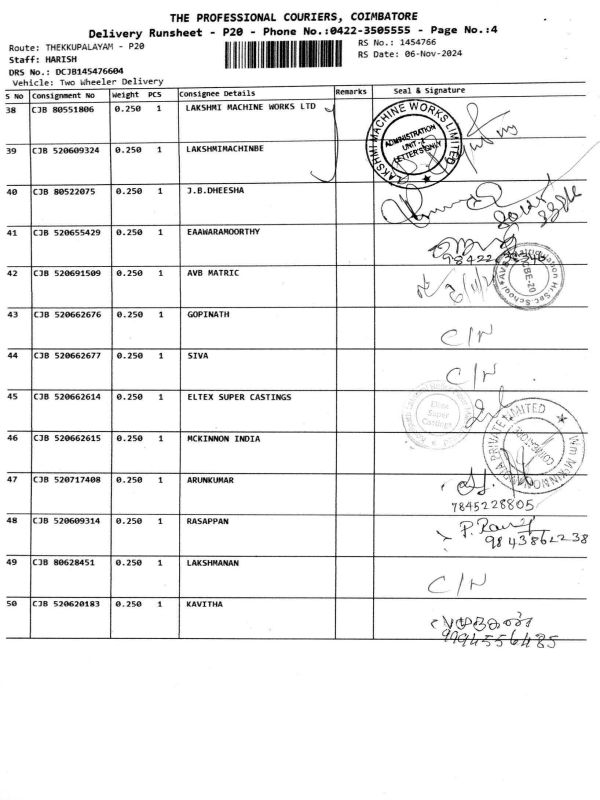 THE PROFESSIONAL COURIERS, COIMBATORE
Delivery Runsheet - P20 - Phone No.:0422-3505555 - Page No.:4
Route: THEKKUPALAYAM - P20
RS No.: 1454766
Staff: HARISH
RS Date: 06-Nov-2024
DRS No.: DCJB145476604
Vehicle: Two Wheeler Delivery
S No Consignment No Weight PCS Consignee Details Remarks Seal & Signature
38 CJB 80551806 0.250 1 LAKSHMI MACHINE WORKS LTD
LAKSHMI MACHINE WORKS LIMITED
ADMINISTRATION
LETTERS ONLY
39 CJB 520609324 0.250 1 LAKSHMIMACHINBE
40 CJB 80522075 0.250 1 J.B.DHEESHA
41 CJB 520655429 0.250 1 EAAWARAMOORTHY
42 CJB 520691509 0.250 1 AVB MATRIC
43 CJB 520662676 0.250 1 GOPINATH
C/N
44 CJB 520662677 0.250 1 SIVA
C/N
45 CJB 520662614 0.250 1 ELTEX SUPER CASTINGS
Eltex
Super
Castings
46 CJB 520662615 0.250 1 MCKINNON INDIA
47 CJB 520717408 0.250 1 ARUNKUMAR
7845228805
48 CJB 520609314 0.250 1 RASAPPAN
9843862238
49 CJB 80628451 0.250 1 LAKSHMANAN
C/N
50 CJB 520620183 0.250 1 KAVITHA
9994556485